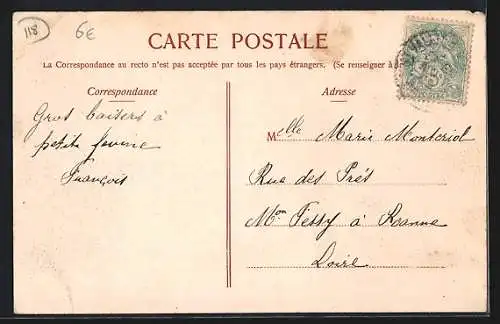 118
6€
CARTE POSTALE
La Correspondance au recto n'est pas acceptée par tous les pays étrangers. (Se renseigner à
Correspondance
Adresse
Gros baisers à
petite
François
Melle Marie Montcriol
Rue des Prés
Mon Fessy à Roanne
Loire